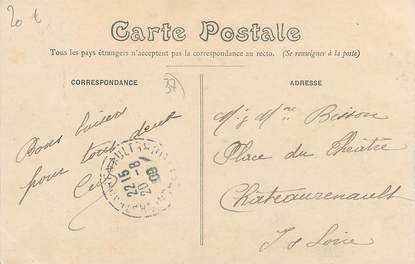 20 €
Carte Postale
Tous les pays étrangers n'acceptent pas la correspondance au recto. (Se renseigner à la poste)
CORRESPONDANCE
37
ADRESSE
Bons baisers
pour tous deux
22 15
20 -8
09
M. & Mme Bisson
Place du théâtre
Châteaurenault
I & Loire